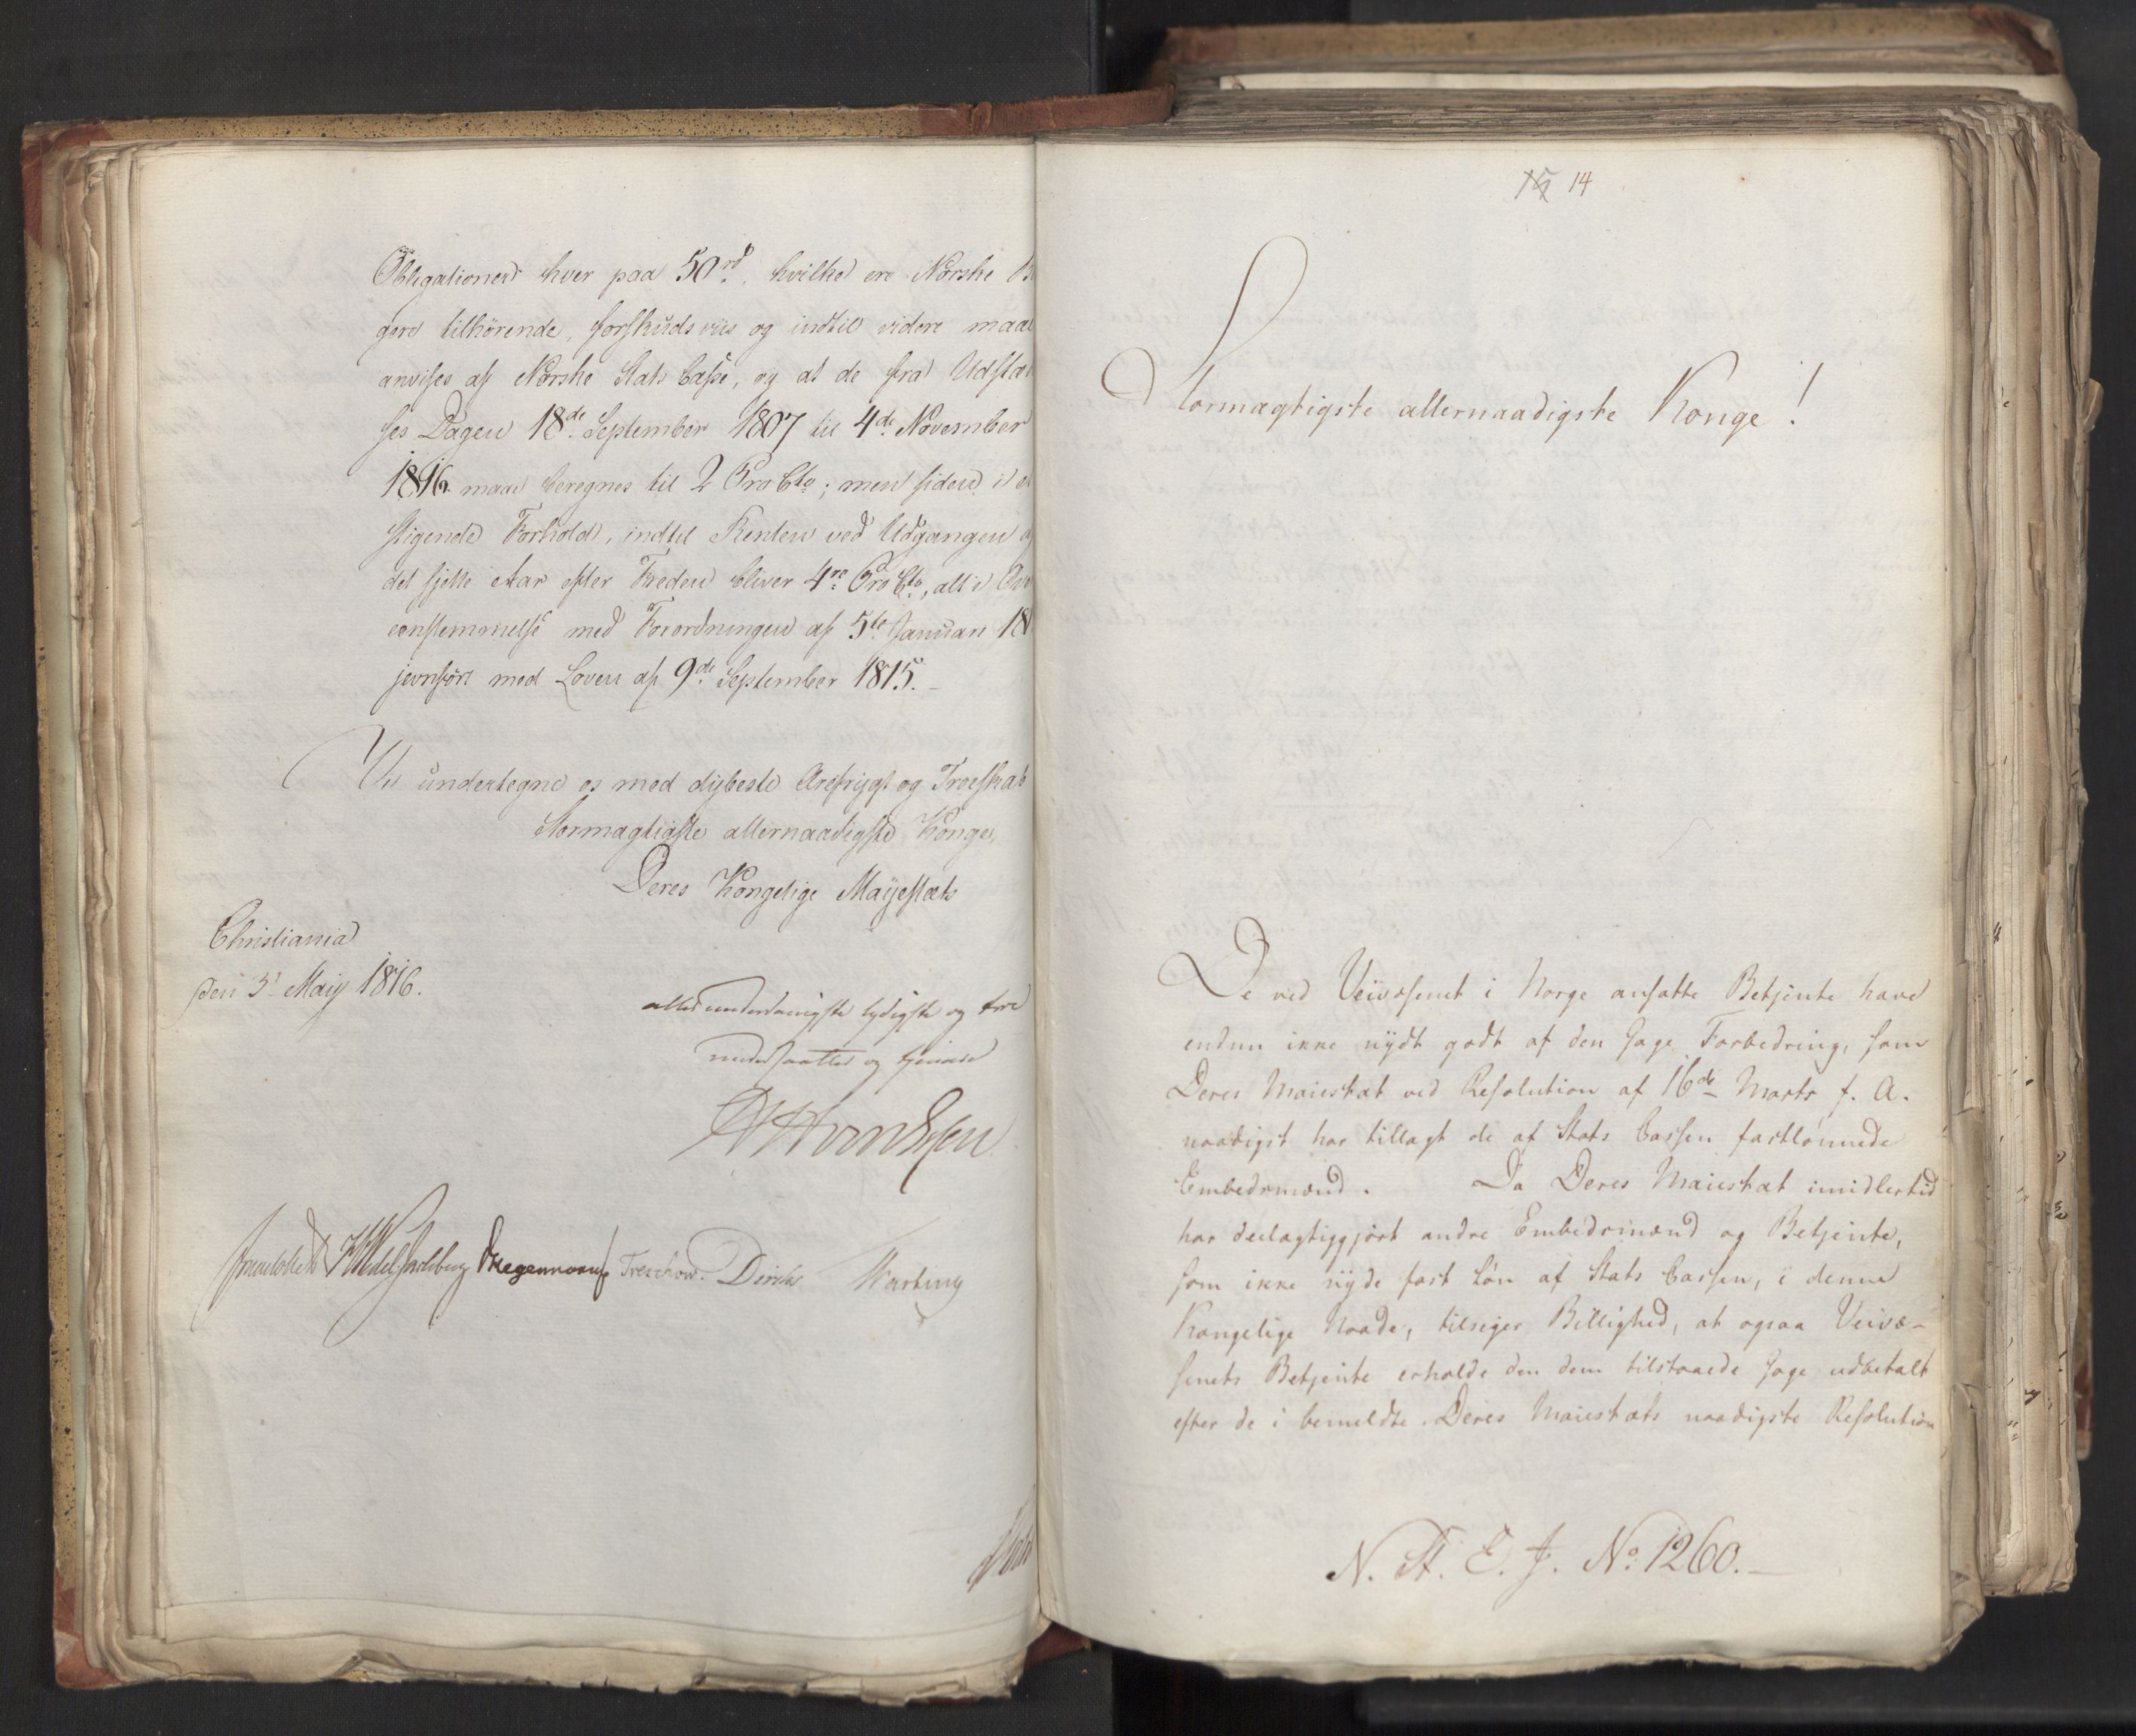 Obligationer hver paa 50 rd. hvilke ere Norske B
gere tilhörende, forskudsviis og indtil videre maae
anvises af Norske Stats Casse, og at de fra Udstæ
ses Dagen 18de September 1807 til 4de November
1816 maae beregnes til 2 Pro Cto; men siden i
stigende Forhold, indtil Renten ved Udgangen a
det sjette Aar efter Freden bliver 4re Pro Cto, alt i Ov
eenstemmelse med Forordningen af 5te Januari 18
jevnfört med Loven af 9de September 1815.
Vi undertegne os med dybeste Ærefrygt og Troeskab
Stormægtigste allernaadigste Konge,
Deres Kongelige Mayestæts
Christiania
den 3 Maiy 1816.
allerunderdanigste lydigste og troe
undersaatter og tjenere
Wedel Jarlsberg Krogennæss Treschow Diriks
15 14
Stormægtigste allernaadigste Konge!
De ved Veivæsenet i Norge ansatte Betjente have
endnu ikke nydt godt af den Gage Forbedring, som
Deres Maiestæt ved Resolution af 16de Marts f. A.
naadigst har tillagt de af Stats Cassen fastlønnede
Embedsmænd. Da Deres Maiestæt imidlertid
har deelagtiggjort andre Embedsmænd og Betjente,
som ikke nyde fast Løn af Stats Cassen, i denne
Kongelige Naade, tilsiger Billighed, at ogsaa Veivæ-
senets Betjente erholde den dem tilstaaede Gage udbetalt
efter de i bemeldte Deres Maiestæts naadigste Resolution
N. St. E. J. No. 1260.